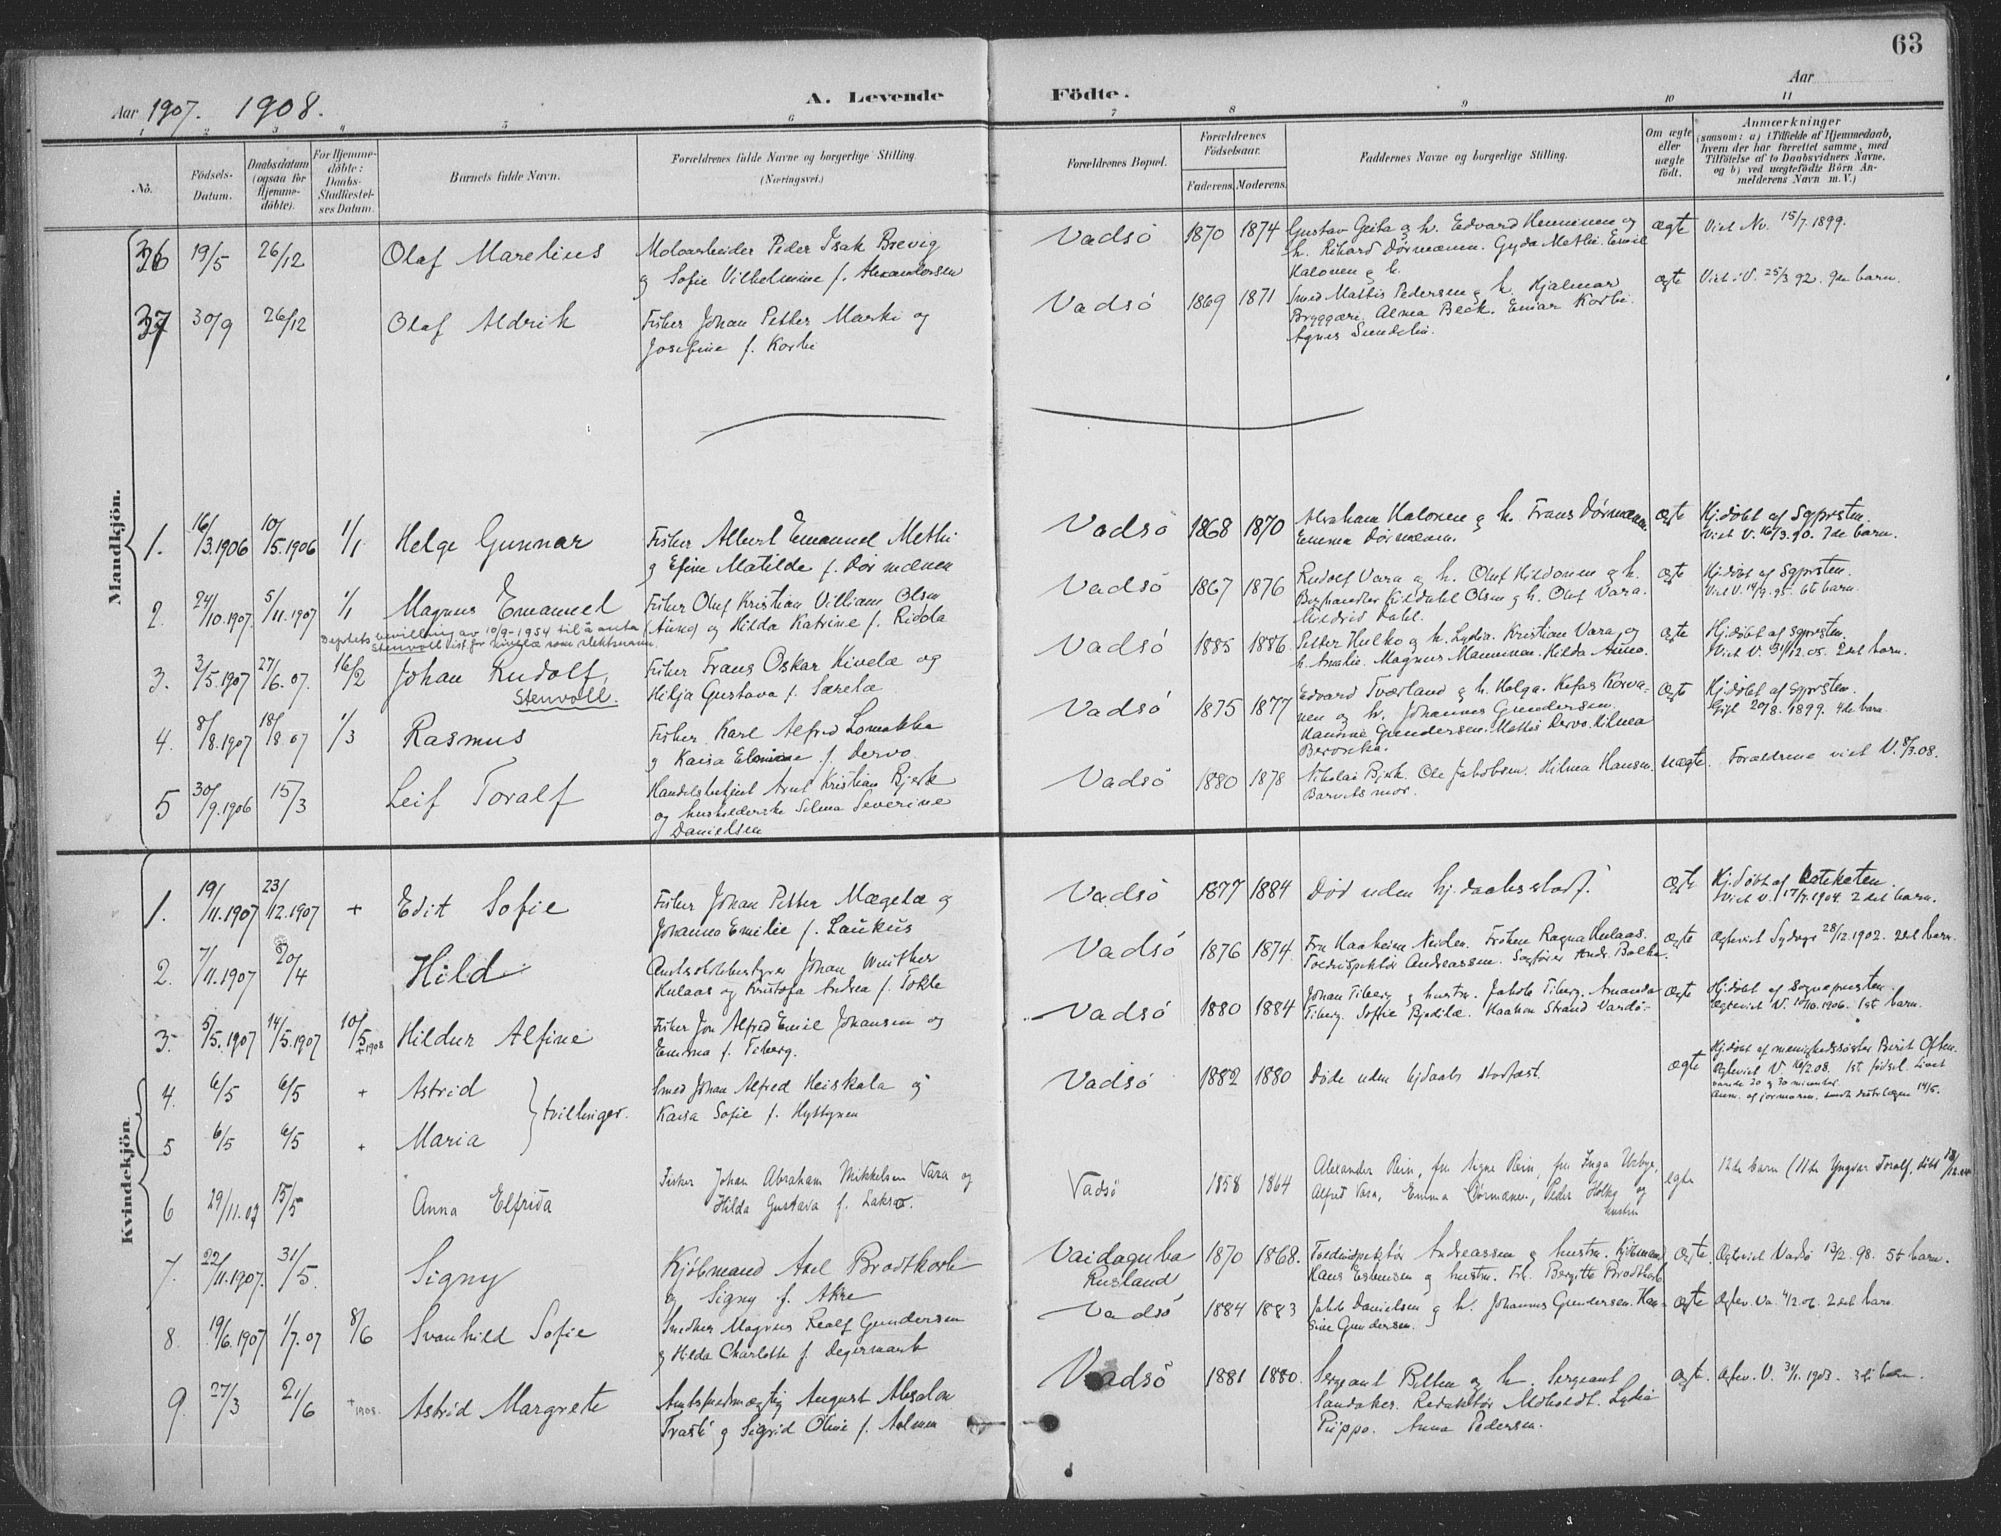 63
Aar 1907. 1908.
A. Levende Födte.
Aar
1 2 3 4 5 6 7 8 9 10 11
No.
Födsels-
Datum.
Daabsdatum
(ogsaa for
Hjemme-
döbte).
For Hjemme-
döbte:
Daabs-
Stadfæstel-
ses Datum.
Barnets fulde Navn.
Forældrenes fulde Navne og borgerlige Stilling
(Næringsvei.)
Forældrenes Bopæl.
Forældrenes
Födselsaar.
Faderens. Moderens.
Faddernes Navne og borgerlige Stilling.
Om ægte
eller
uægte
födt.
Anmærkninger
(saasom: a) i Tilfælde af Hjemmedaab,
hvem der har forrettet samme, med
Tilföielse af to Daabsvidners Navne,
og b) ved uægtefödte Börn An-
melderens Navn m. V.)
Mandkjön.
36 19/5 26/12 Olaf Marelius
Moloarbeider Peder Isak Brevig
og Sofie Vilhelmine f. Alexandersen
Vadsö 1870 1874
Gustav Geita og h. Edvard Henninen og
h. Rikard Dørmænen. Gyda Methi. Emil
Halonen og h.
ægte Viet Nv. 15/7 1899.
37 30/9 26/12 Olaf Aldrik
Fisker Johan Petter Marki og
Josefine f. Korbi
Vadsö 1869 1871
Smed Mathis Pedersen og h. Hjalmar
Bryggæri. Alma Beck. Einar Korbi.
Agnes Sundelin.
ægte Viet i V. 25/3 92. 9de barn.
1. 16/3.1906 10/5.1906 1/1 Helge Gunnar
Fisker Albert Emanuel Methi
og Efine Matilde f. Dörmænen
Vadsö 1868 1870
Abraham Halonen og h. Frans Dørmænen
Emma Dørmænen.
ægte Hj.døbt af Sgprsten.
Viet V. 16/3.90. 7de barn.
2. 24/10.1907 5/11.1907 1/1 Magnus Emanuel
Fisker Oluf Kristian Villiam Olsen
(Aune) og Hilda Katrine f. Ridola
Vadsö 1867 1876
Rudolf Vara og h. Oluf Hildonen og h.
Boghandler Kildahl Olsen og h. Oluf Vara.
Mildrid Dahl.
ægte Hj.døbt af Sgprsten.
Viet V. 14/9.95. 6te barn.
Deptets bevilling av 10/9-1954 til å anta
Stenvoll ist. for Kivelæ som slektsnavn.
3. 3/5.1907 27/6.07. 16/2 Johan Rudolf,
Stenvoll.
Fisker Frans Oskar Kivelæ og
Hilja Gustava f. Særelæ
Vadsö 1885 1886
Petter Hulko og h. Lydia. Kristian Vara og
h. Amalie. Magnus Manninen. Hilda Aune.
ægte Hj.døbt af sgprsten.
Viet V. 31/12.05. 2det barn.
4. 8/8.1907 18/8.07 1/3 Rasmus
Fisker Karl Alfred Lomakka
og Kaisa Elmine f. Dervo
Vadsö 1875 1877
Edvard Tværland og h. Helga. Kefas Korva-
nen og h. Johannes Gundersen.
Hanne Gundersen. Mathis Dervo. Hilma
ægte Hj.døbt af Sgprsten.
Gift 20/8. 1899. 4de barn
5 30/9.1906 15/3 Leif Toralf
Handelsbetjent Arnt Kristian Bjerk
og husholderske Selma Severine
Danielsen
Vadsö 1880 1878
Nikolai Bjerk. Ole Jakobsen. Hilma Hansen.
Barnets mor.
uægte. Forældrene viet V. 8/3.08.
Kvindekjön.
1. 19/11.1907 23/12.1907 + Edit Sofie
Fisker Johan Petter Mægelæ og
Johanna Emilie f. Laukus
Vadsö 1877 1884 Död uden hj.daabsstadf.
ægte Hj.døbt af Kateketen.
Viet V. 17/7.1904. 2det barn.
2. 7/11.1907 20/4 Hild
Amtsskolebestyrer Johan Winther
Hulaas og Kristofa Andrea f. Tokle
Vadsö 1876 1874.
Fru Haaheim Neiden. Frøken Ragna Hulaas.
Toldinspektør Andreassen. Sagfører Andr. Bakke.
ægte Ægteviet Sydvgr 28/12.1902. 2det barn.
3. 5/5.1907 14/5.1907 10/5 +1908 Hildur Alfine
Fisker Jon Alfred Emil Johansen og
Emma f. Tiberg.
Vadsö 1880 1884
Johan Tiberg og hustru. Jakob Tiberg. Amanda
Tiberg. Sofie Bjedilæ. Haakon Strand Vardö.
ægte Hj.døbt af Sogneprsten.
Ægteviet V. 10/10.1906. 1st barn.
4. 6/5 6/5 + Astrid
5 6/5 6/5 + Maria
tvillinger.
Smed Johan Alfred Heiskala og
Kaisa Sofie f. Hyttynen
Vadsö 1882 1880 Döde uden hjdaabs stadfæst.
ægte Hj.døbt af menighedssøster Berit Often.
Ægteviet V. 16/2 08. 1st fødsel. Livet
varede 20 og 30 minutter
6 29/11.07 15/5 Anna Elfrida
Fisker Johan Abraham Mikkelsen Vara og
Hilda Gustava f. Lakso.
Vadsö 1858 1864
Alexander Rein, fru Signe Rein, fru Inga Uxbye,
Alfred Vara, Emma Dørmænen, Peder Holby og
hustru
egte 12te barn (11te Yngvar Toralf, döbt 18/12.04
7. 22/11.1907. 31/5. Signy
Kjöbmand Axel Brodtkorb
og Signy f. Akre
Vaidaguba
Rusland
1870 1868.
Toldinspektør Andreassen og hustru. Kjöbmand
Hans Esbensen og hustru. Frk. Bergitte Brodtkorb
ægte. Ægteviet Vadsö 13/2. 98. 5t barn.
8. 19/6.1907 1/7.07 8/6 Svanhild Sofie
Snedker Magnus Realf Gundersen
og Hilda Charlotte f. Degermark
Vadsö 1884 1883
Jakob Danielsen og h. Johannes Gundersen. Han-
sine Gundersen.
ægte Ægtev. Va. 4/12.06. 2det barn
9. 27/3 21/6 +1908. Astrid Margrete
Amtsfuldmægtig August Absalon
Trasti og Sigrid Oline f. Aalmen
Vadsö 1881 1880.
Sergeant Petten og h. Sergeant
Sandaker. Redaktør Moholdt. Lydia
Piippo. Anna Pedersen.
ægte. Ægtev. V. 31/1. 1903. 3die barn.